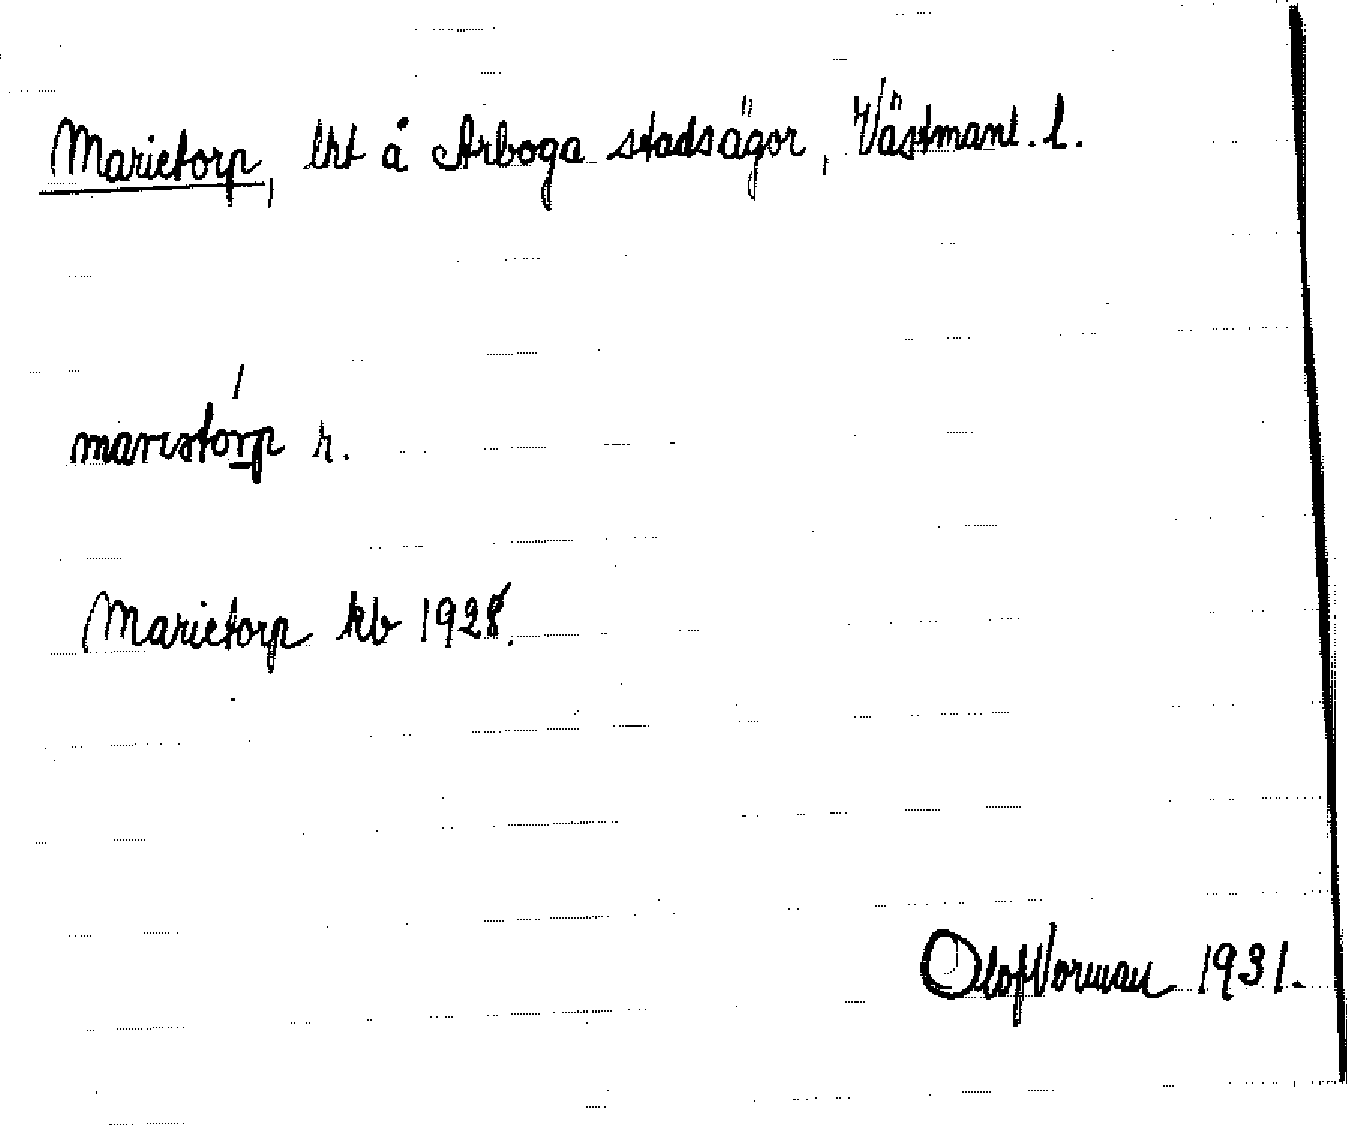 Marietorp, lht å Arboga stadsägor, Västmanl. l.
maristórp r.
Marietorp kb 1928.
Olof Vorman 1931.